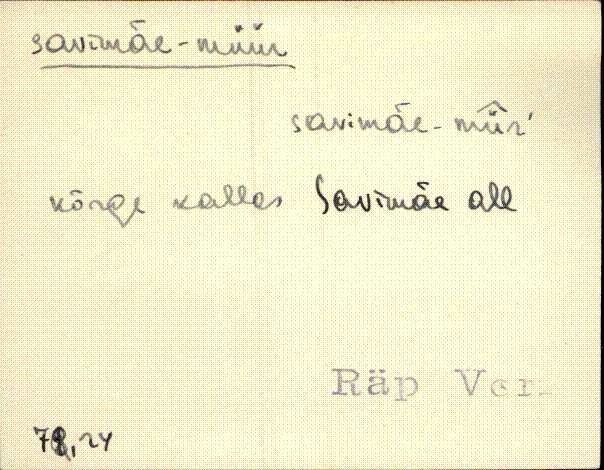 savimäe-müür
savimäe-müîr'
kõrge kallas Savimäe all
Räp Ver.
78,24